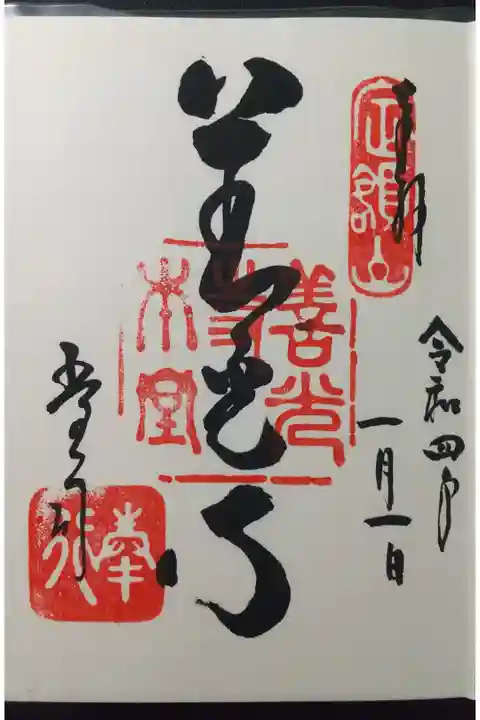 奉拝
定額山
令和四年
一月一日
善光寺
善光寺本堂
奉行